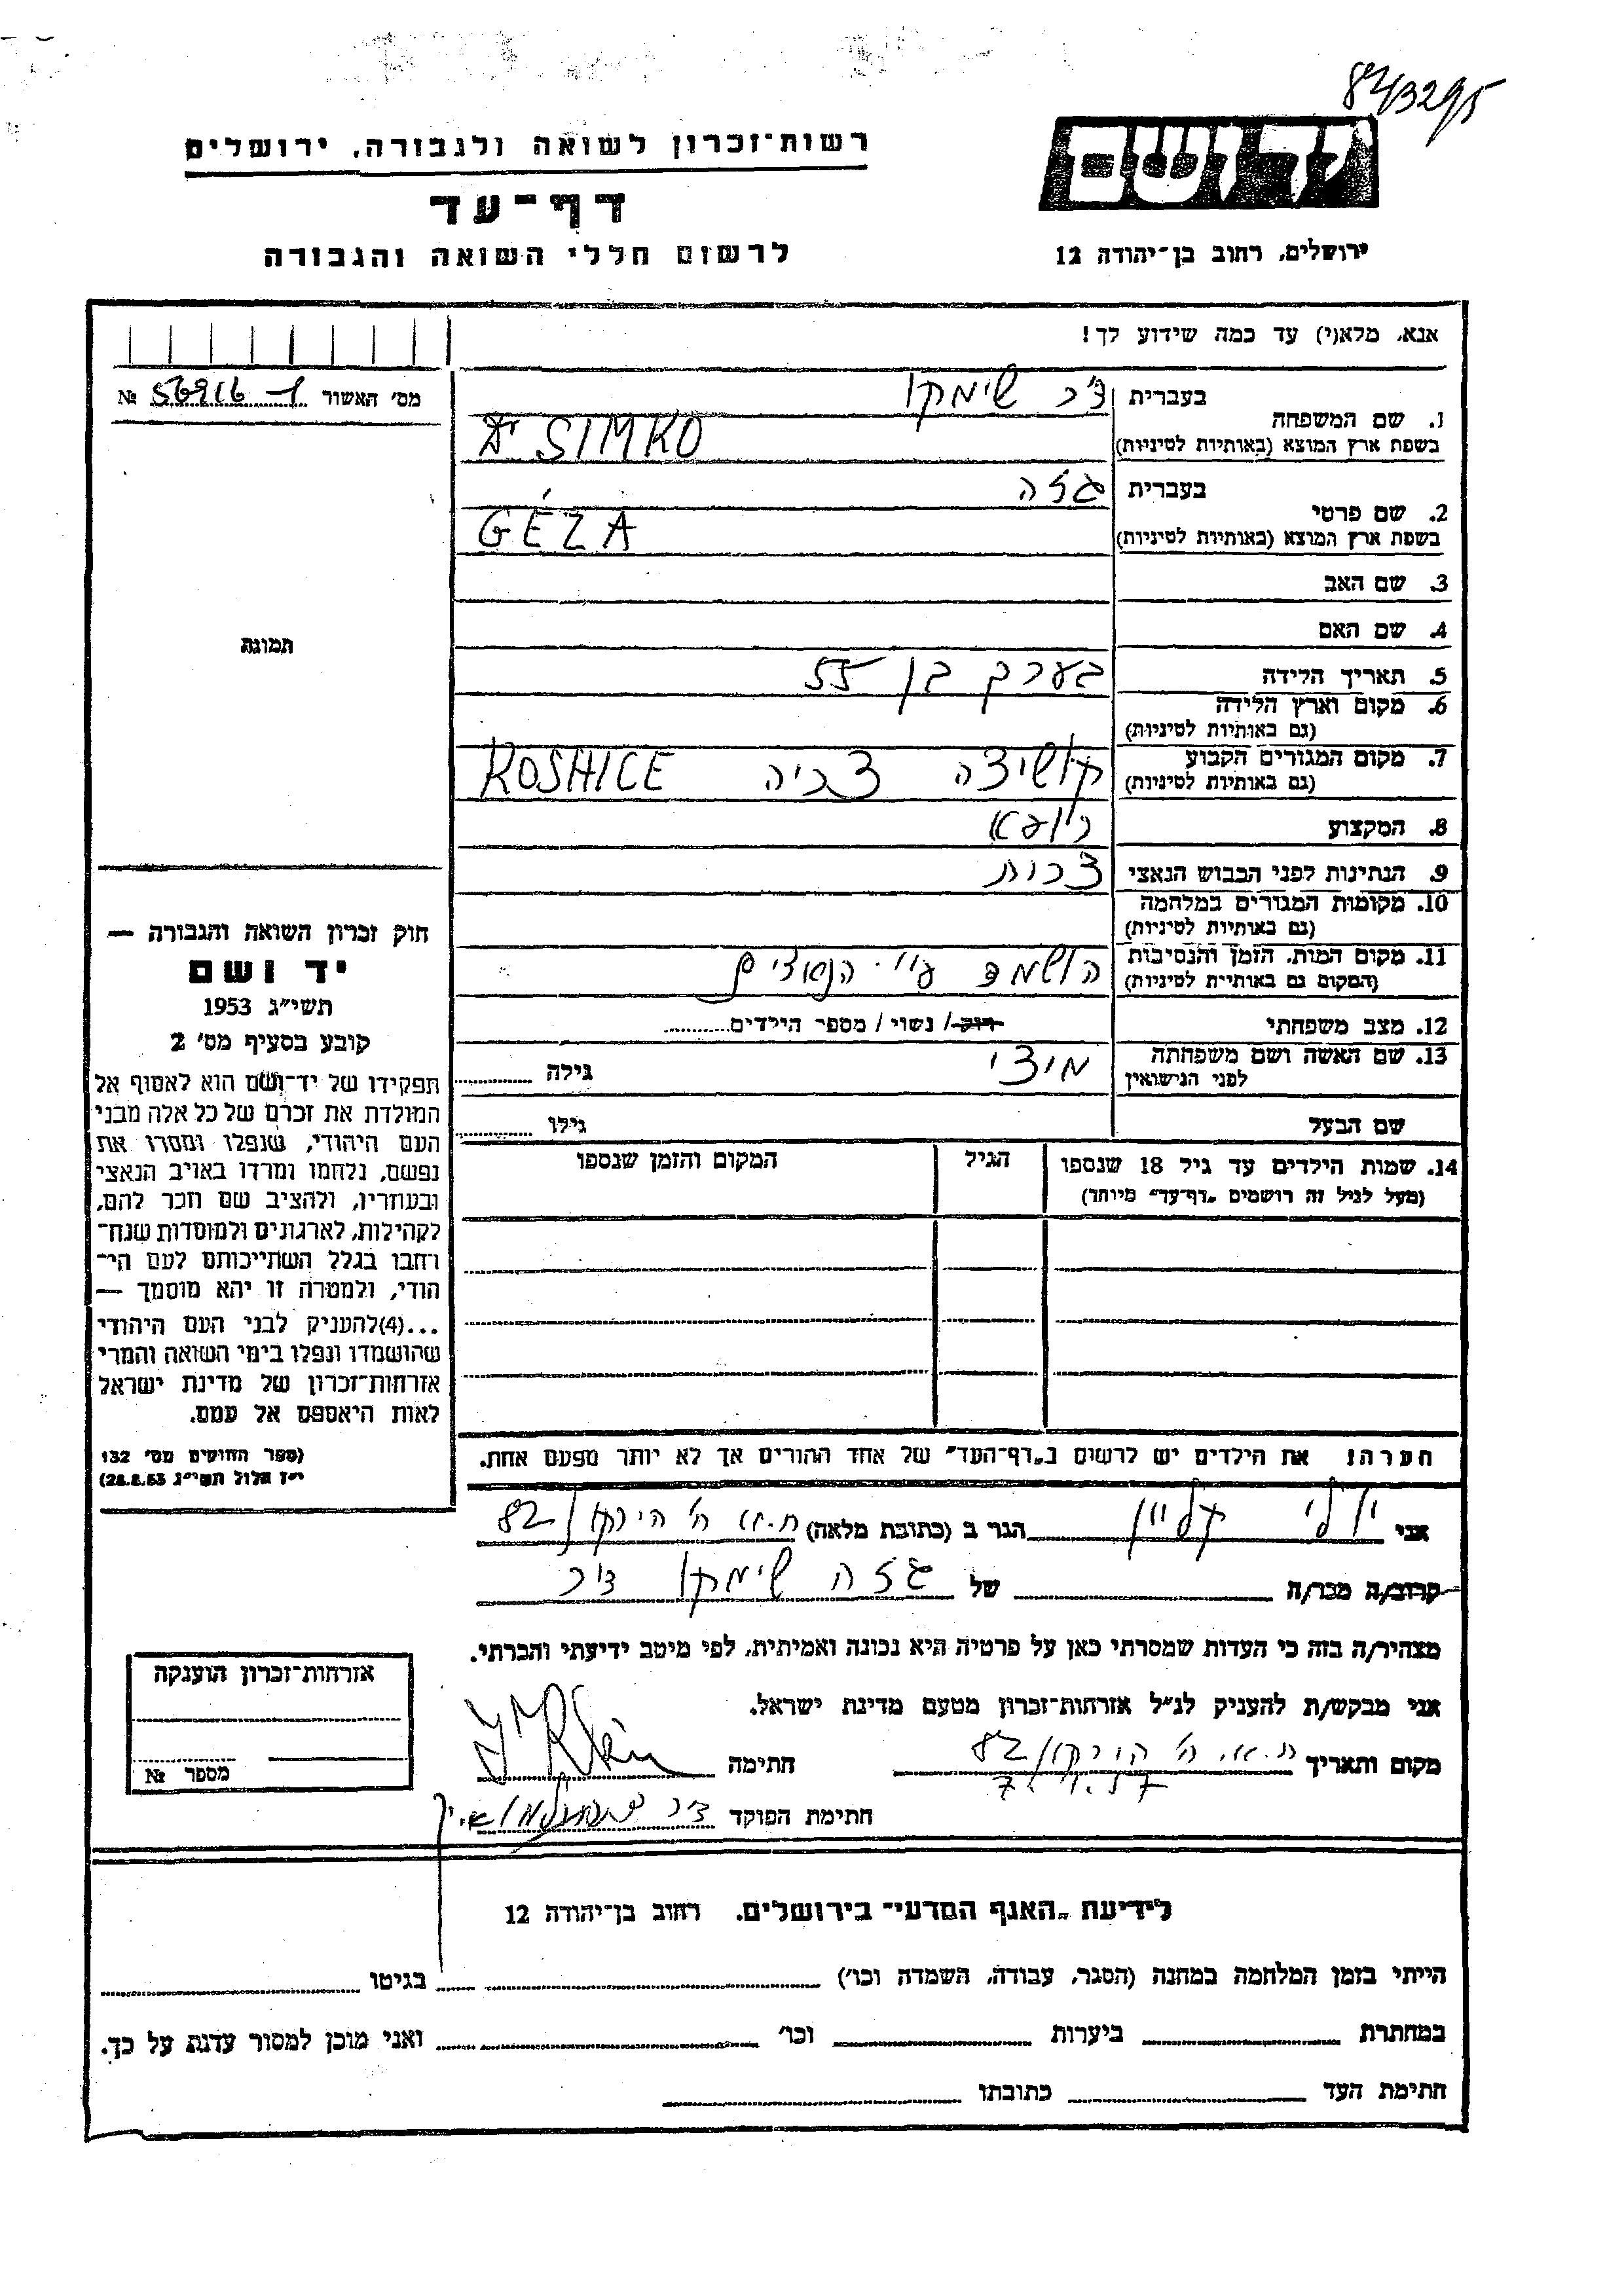 84/3295
יד ושם
ירושלים, רחוב בן־יהודה 12
רשות־זכרון לשואה ולגבורה, ירושלים
דף־עד
לרשום חללי השואה והגבורה
אנא, מלא(י) עד כמה שידוע לך!
מס׳ האשור 56916-1 №
תמונה
1. שם המשפחה
בעברית ד״ר שימקו
בשפת ארץ המוצא (באותיות לטיניות) SIMKO
2. שם פרטי
בעברית גזה
בשפת ארץ המוצא (באותיות לטיניות) GÉZA
3. שם האב
4. שם האם
5. תאריך הלידה בערך בן 55
6. מקום וארץ הלידה
(גם באותיות לטיניות)
7. מקום המגורים הקבוע קושיצה צ׳כיה KOSHICE
(גם באותיות לטיניות)
8. המקצוע רופא
9. הנתינות לפני הכבוש הנאצי צ׳כית
10. מקומות המגורים במלחמה
(גם באותיות לטיניות)
11. מקום המות, הזמן והנסיבות הושמד ע״י הנאצים
(המקום גם באותיות לטיניות)
12. מצב משפחתי רוק/ נשוי / מספר הילדים
13. שם האשה ושם משפחתה מיצי גילה
לפני הנישואין
שם הבעל גילו
14. שמות הילדים עד גיל 18 שנספו הגיל המקום והזמן שנספו
(מעל לגיל זה רושמים „דף־עד״ מיוחד)
חוק זכרון השואה והגבורה —
יד ושם
תשי״ג 1953
קובע בסעיף מס׳ 2
תפקידו של יד־ושם הוא לאסוף אל
המולדת את זכרם של כל אלה מבני
העם היהודי, שנפלו ומסרו את
נפשם, נלחמו ומרדו באויב הנאצי
ובעוזריו, ולהציב שם וזכר להם,
לקהילות, לארגונים ולמוסדות שנח־
רחבו בגלל השתייכותם לעם הי־
הודי, ולמטרה זו יהא מוסמך —
...(4)להעניק לבני העם היהודי
שהושמדו ונפלו בימי השואה והמרי
אזרחות־זכרון של מדינת ישראל
לאות היאספם אל עמם.
(ספר החוקים מס׳ 132
י״ז אלול תשי״ג 28.8.53)
הערה! את הילדים יש לרשום ב„דף־העד״ של אחד ההורים אך לא יותר מפעם אחת.
אני קליין הגר ב (כתובת מלאה) ת.א. ר׳ הירקון 82
קרוב/ה מכר/ה של גזה שימקו ד״ר
מצהיר/ה בזה כי העדות שמסרתי כאן על פרטיה היא נכונה ואמיתית, לפי מיטב ידיעתי והכרתי.
אני מבקש/ת להעניק לנ״ל אזרחות־זכרון מטעם מדינת ישראל.
מקום ותאריך ת.א. ר׳ הירקון 82 חתימה Klein
חתימת הפוקד ד״ר
אזרחות־זכרון הוענקה
מספר №
לידיעת „האגף המדעי״ בירושלים, רחוב בן־יהודה 12
הייתי בזמן המלחמה במחנה (הסגר, עבודה, השמדה וכו׳) בגיטו
במחתרת ביערות וכו׳ ואני מוכן למסור עדות על כך.
חתימת העד כתובתו